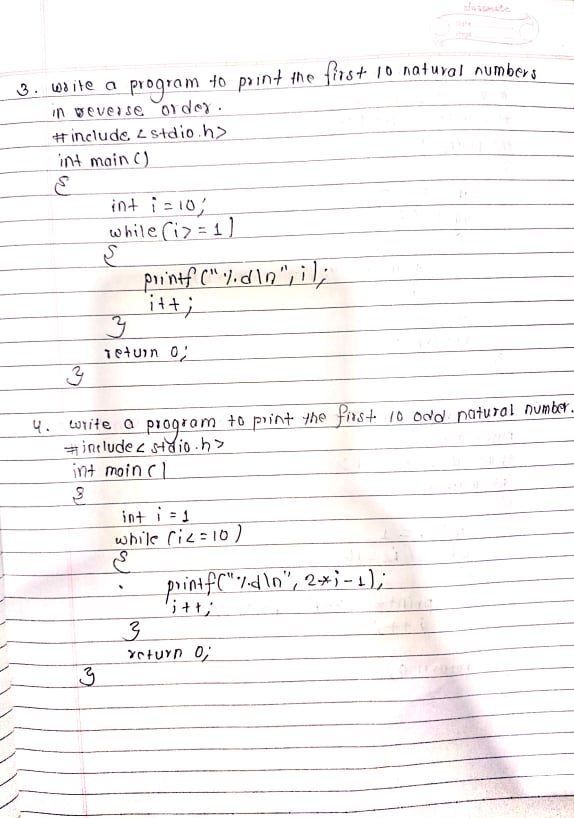 classmate
3. write a program to print the first 10 natural numbers
in reverse order.
#include <stdio.h>
int main()
{
int i = 10;
while(i>=1)
{
printf("%d\n", i);
i++;
}
return 0;
}
4. write a program to print the first 10 odd natural number.
#include< stdio.h>
int main()
{
int i = 1
while (i<=10)
{
printf("%d\n", 2*i-1);
i++;
}
return 0;
}